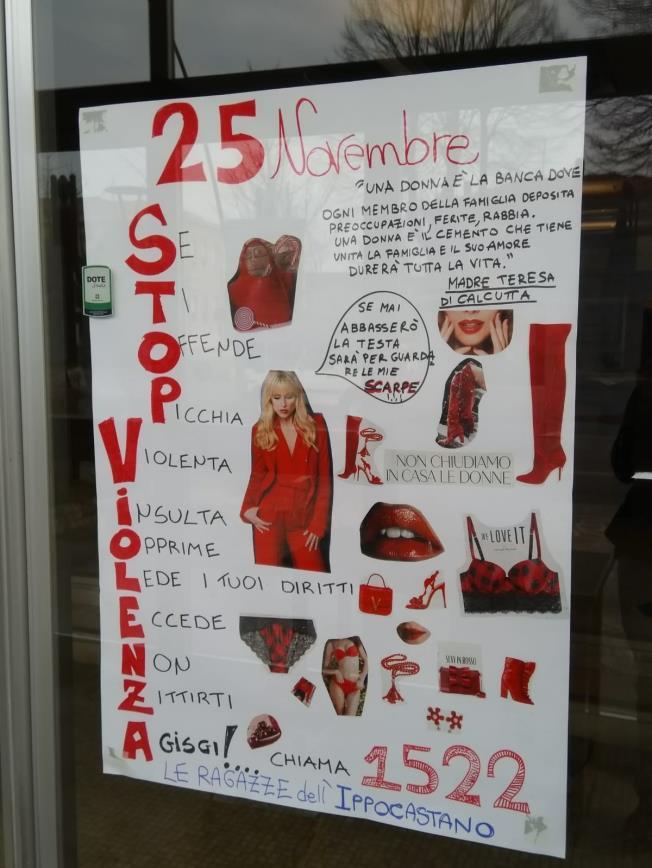 25 Novembre
"UNA DONNA È LA BANCA DOVE
OGNI MEMBRO DELLA FAMIGLIA DEPOSITA
PREOCCUPAZIONI, FERITE, RABBIA.
UNA DONNA È IL CEMENTO CHE TIENE
UNITA LA FAMIGLIA E IL SUO AMORE
DURERÀ TUTTA LA VITA."
MADRE TERESA
DI CALCUTTA
SE
TI
OFFENDE
PICCHIA
VIOLENTA
INSULTA
OPPRIME
LEDE I TUOI DIRITTI
ECCEDE
NON
ZITTIRTI
AGISCI!....
SE MAI
ABBASSERÒ
LA TESTA
SARÀ PER GUARDA
RE LE MIE
SCARPE
!!!
NON CHIUDIAMO
IN CASA LE DONNE
WE LOVE IT
SEXY IN ROSSO
DOTE
CHIAMA 1522
LE RAGAZZE dell' IPPOCASTANO